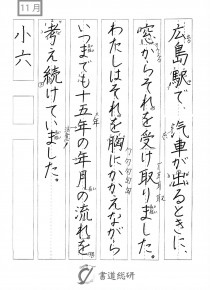 11月
広島駅で、汽車が出るときに、
窓からそれを受け取りました。
わたしはそれを胸にかかえながら
いつまでも十五年の年月の流れを
考え続けていました。
小六
書道総研